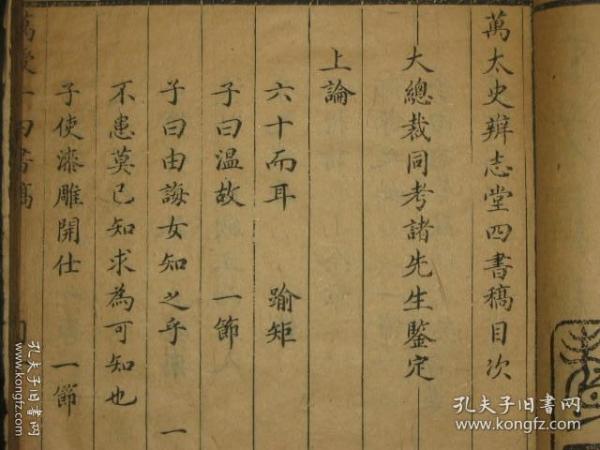 萬太史辨志堂四書稿目次
大總裁同考諸先生鑒定
上論
六十而耳 踰矩
子曰溫故 一節
子曰由誨女知之乎 一
不患莫己知求為可知也
子使漆雕開仕 一節
孔夫子旧书网
www.kongfz.com
孔夫子旧书网
www.kongfz.com